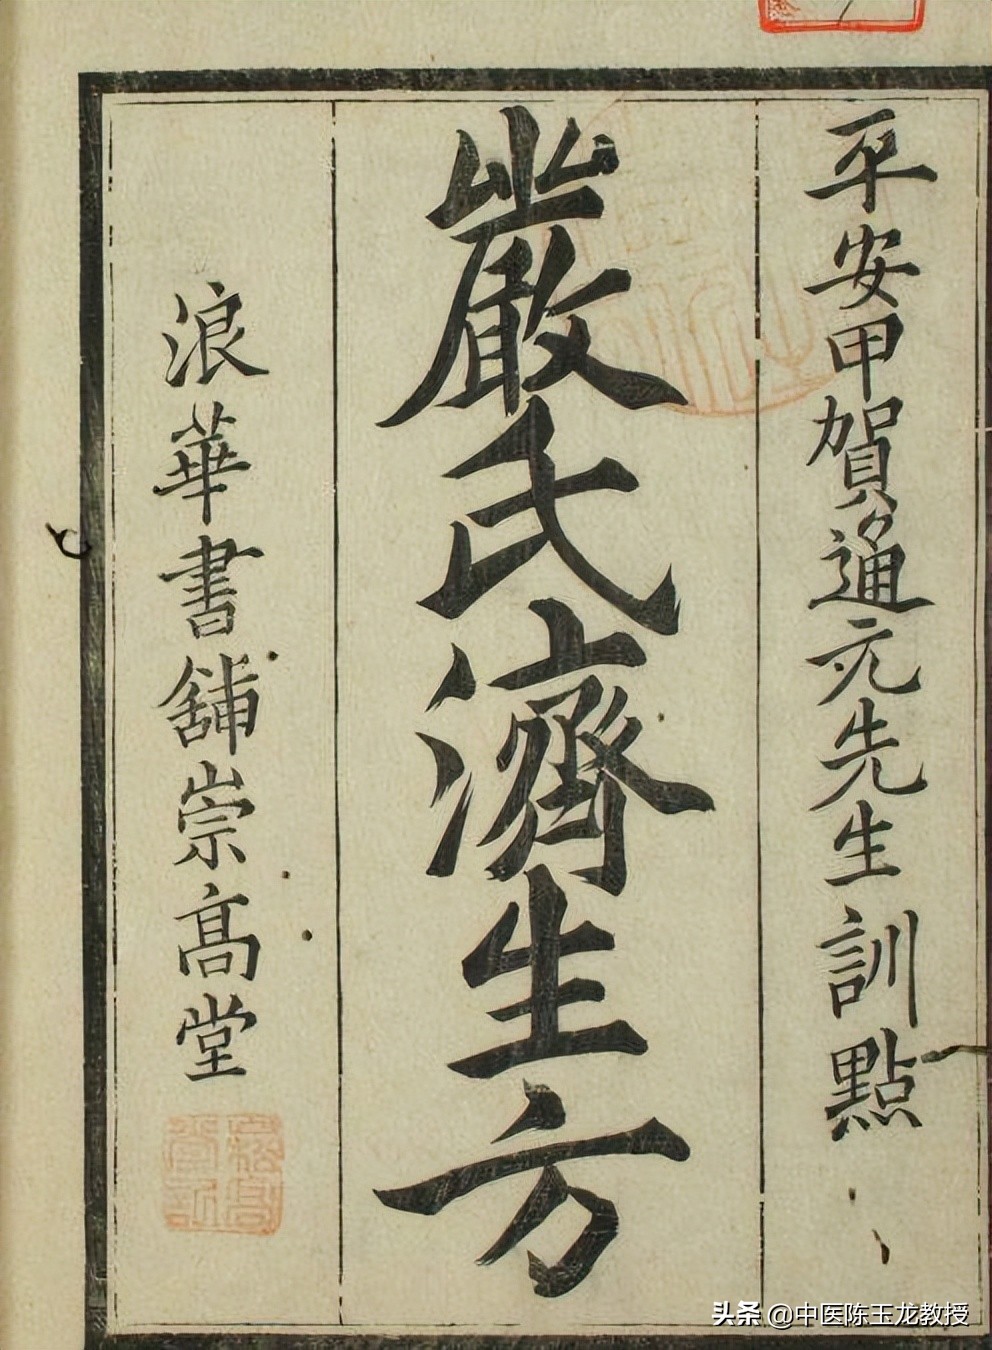 平安甲賀通元先生訓點
嚴氏濟生方
浪華書舖崇高堂
头条 @中医陈玉龙教授